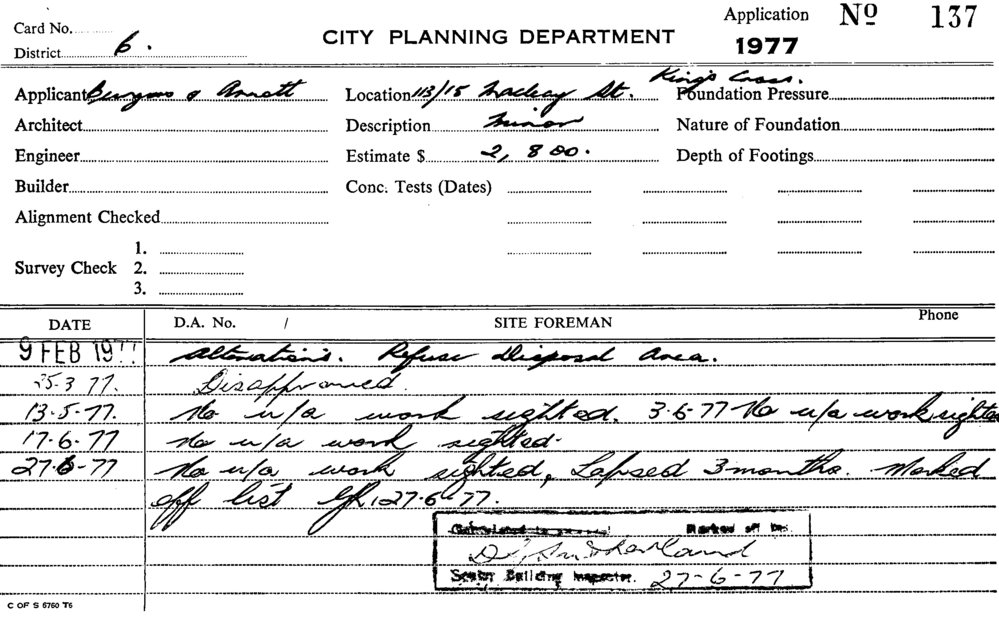 Card No.
Application Nº 137
District 6.
CITY PLANNING DEPARTMENT 1977
Applicant Burgess & Arnott Location 113/15 Macleay St. Kings Cross. Foundation Pressure
Architect Description Minor Nature of Foundation
Engineer Estimate $ 2,800. Depth of Footings
Builder Conc. Tests (Dates)
Alignment Checked
1.
Survey Check 2.
3.
DATE D.A. No. / SITE FOREMAN Phone
9 FEB 1977 Alterations. Refuse Disposal Area.
25-3 77. Disapproved.
13-5-77. No u/a work sighted. 3-6-77 No u/a work sighted
17-6-77 No u/a work sighted.
27-6-77 No u/a work sighted, Lapsed 3 months. Marked
off list 27-6-77.
Marked off by:
D. Sutherland
Senior Building Inspector. 27-6-77
C OF S 6760 T6